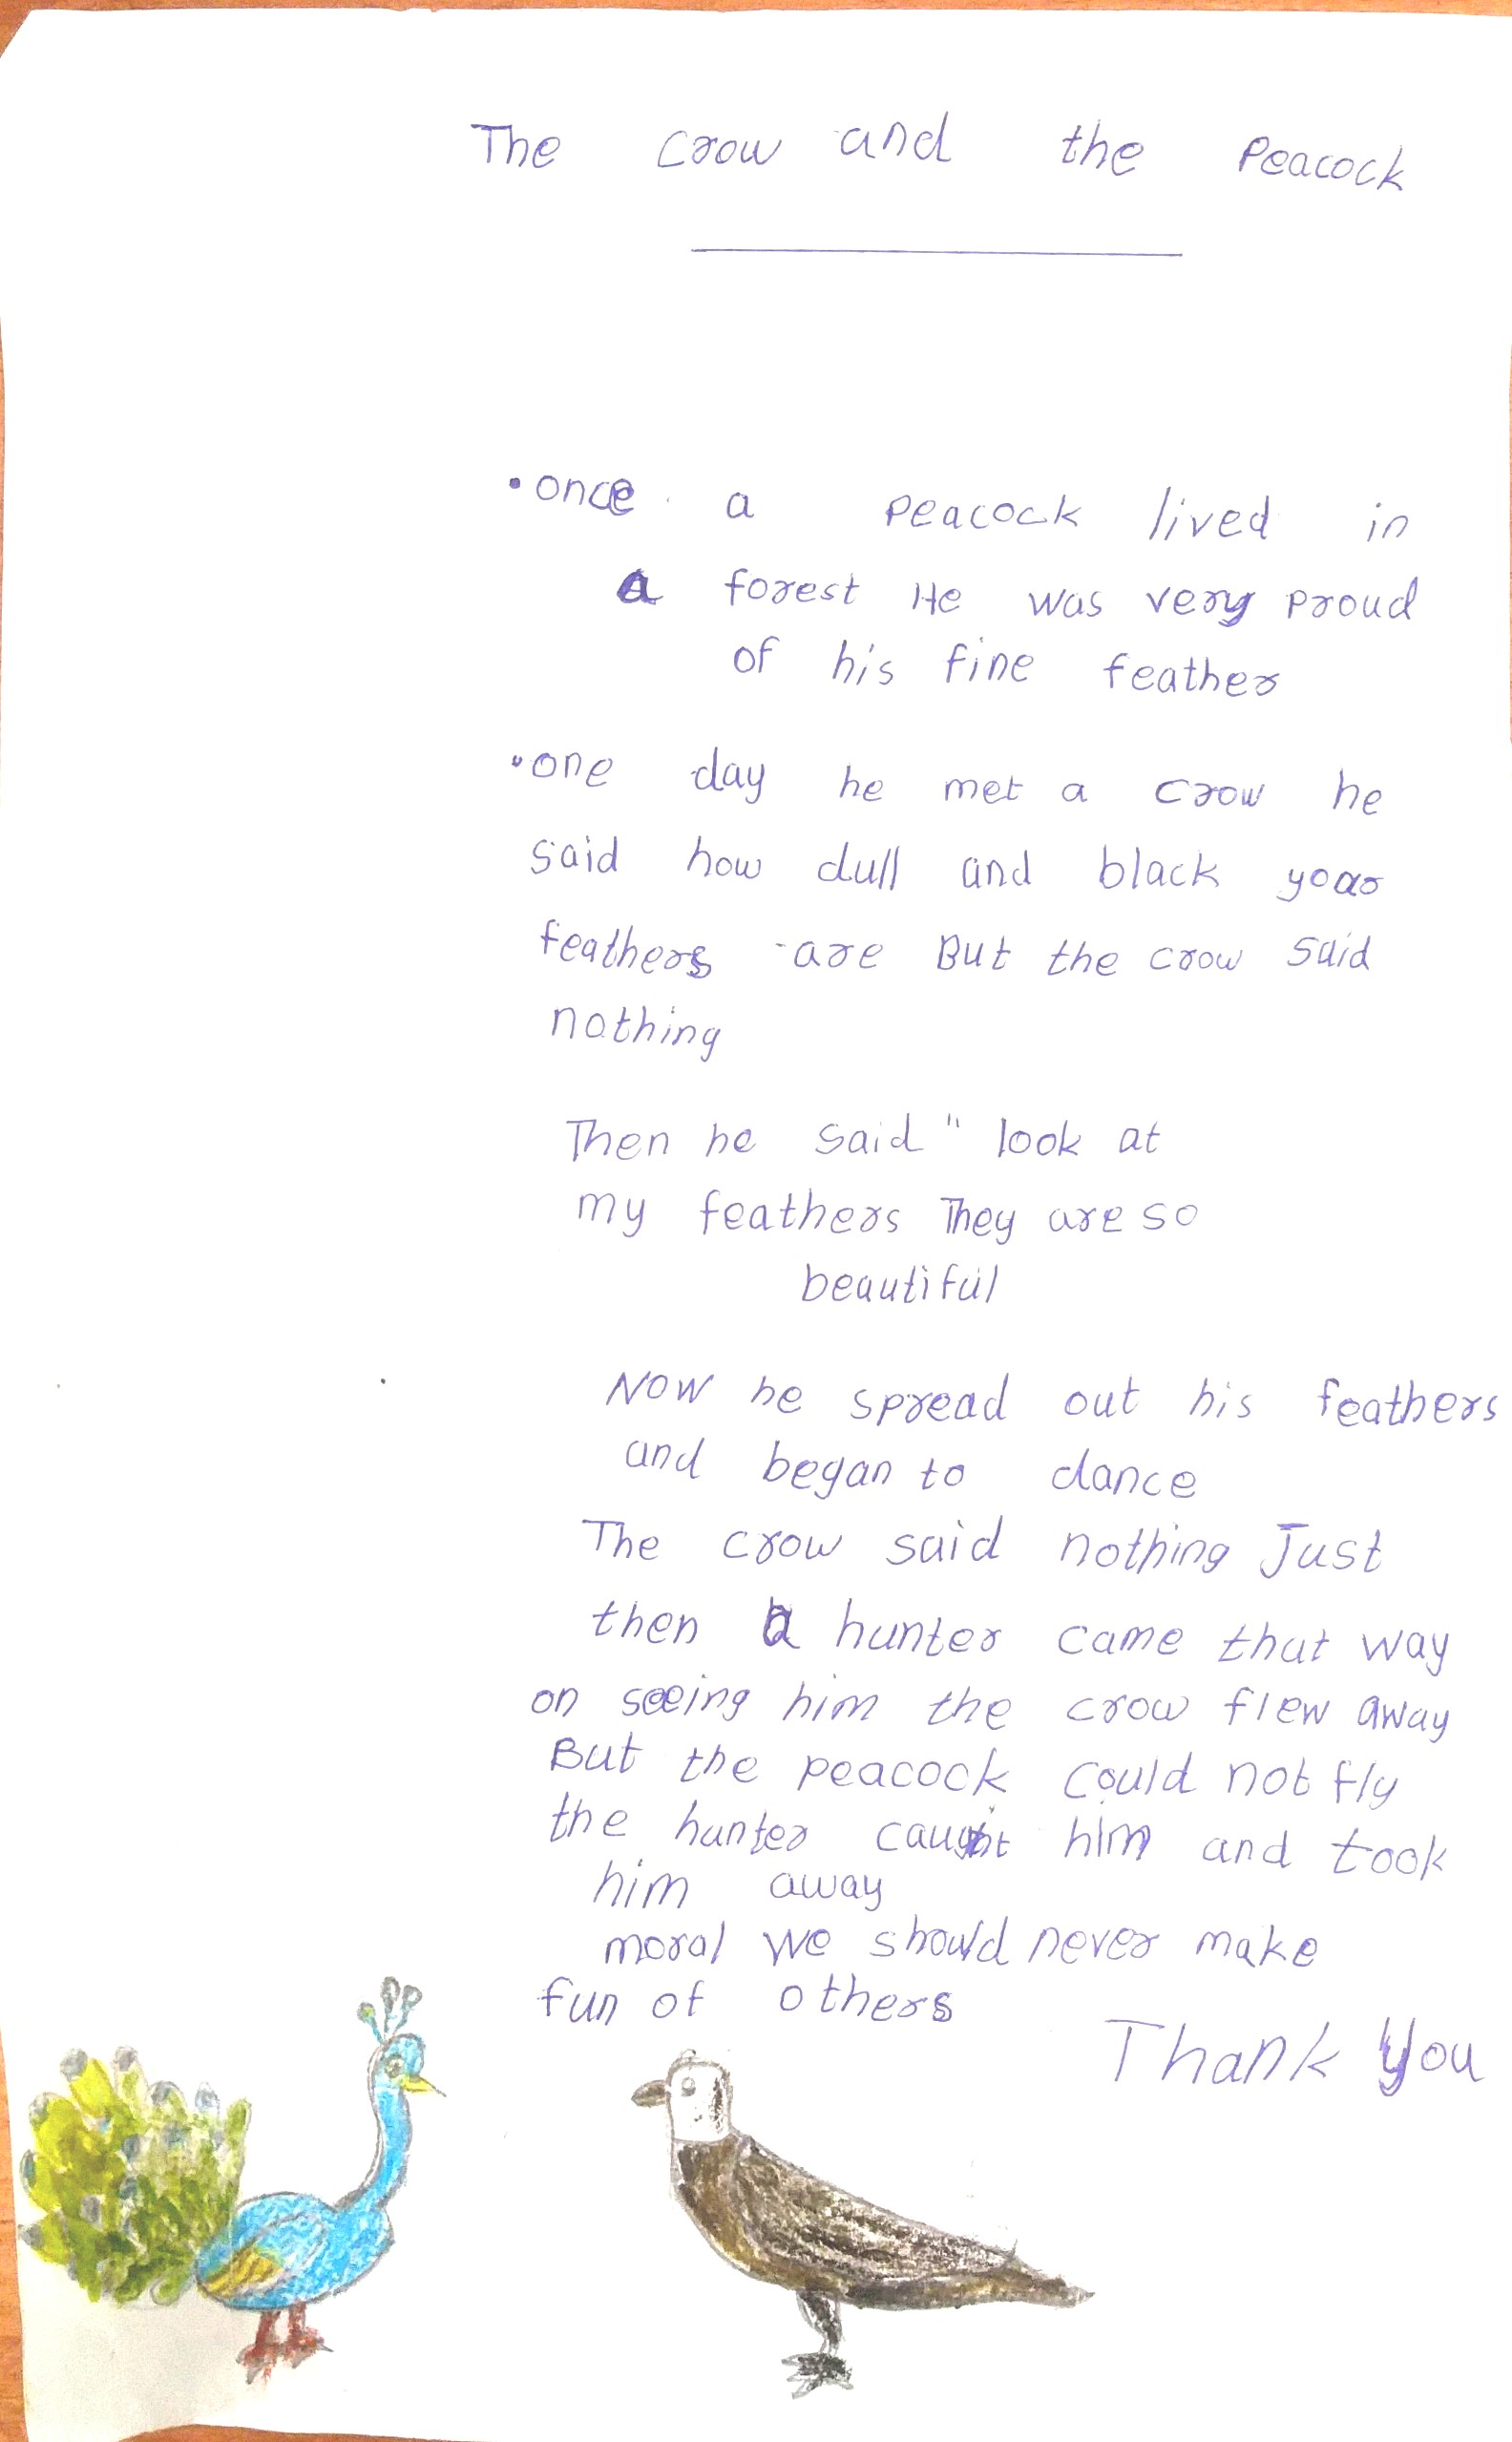 The crow and the Peacock
• once a Peacock lived in
a forest He was very Proud
of his fine feather
• one day he met a crow he
said how dull and black yoar
feathers are But the crow said
nothing
Then he said " look at
my feathers They are so
beautiful
Now he spread out his feathers
and began to dance
The crow said nothing Just
then a hunter came that way
on seeing him the crow flew away
But the peacock could not fly
the hunter caught him and took
him away
moral we should never make
fun of others
Thank You